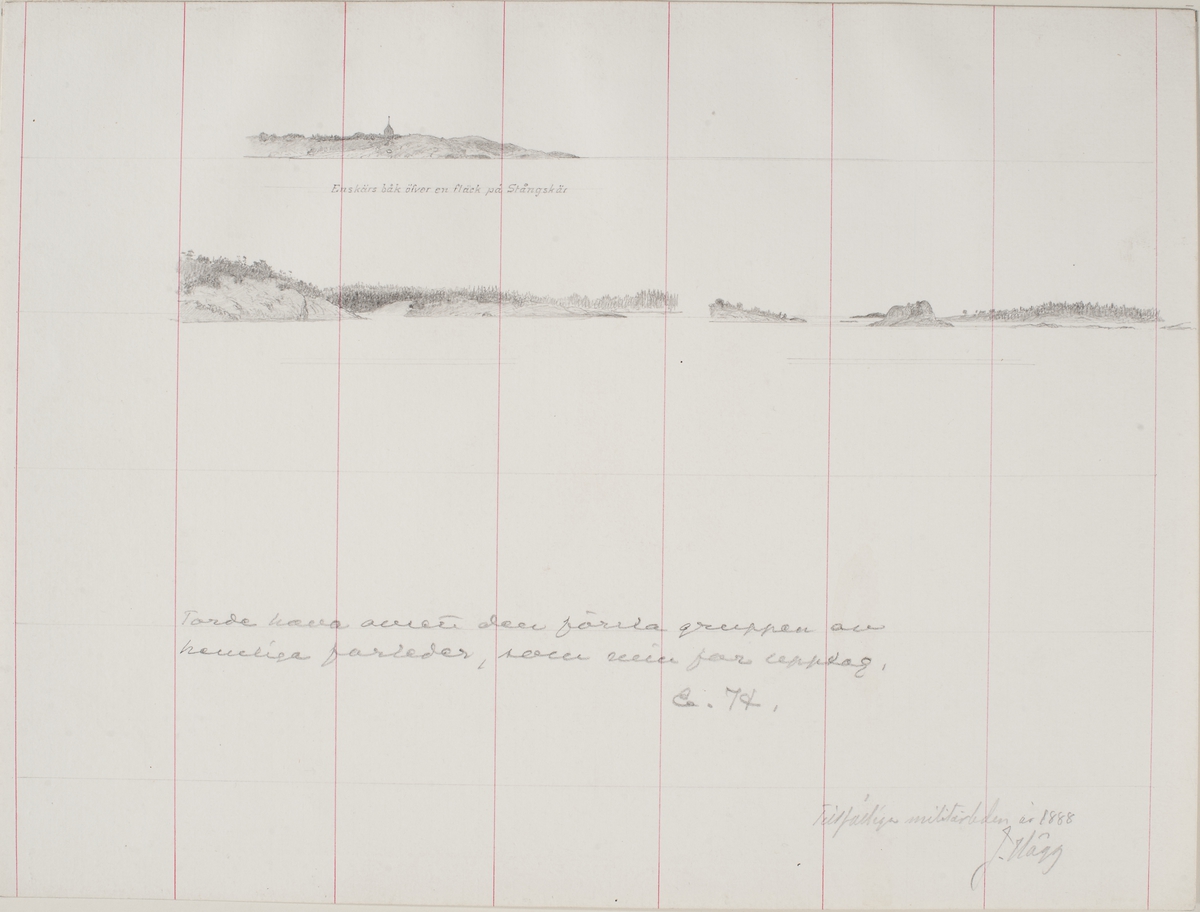 Enskärs båk öfver en fläck på Stångskär
Torde hava avsett den första gruppen av
hemliga farleder, som min far upptog.
E. H.
Tillfälliga militärleden år 1888
J. Hägg